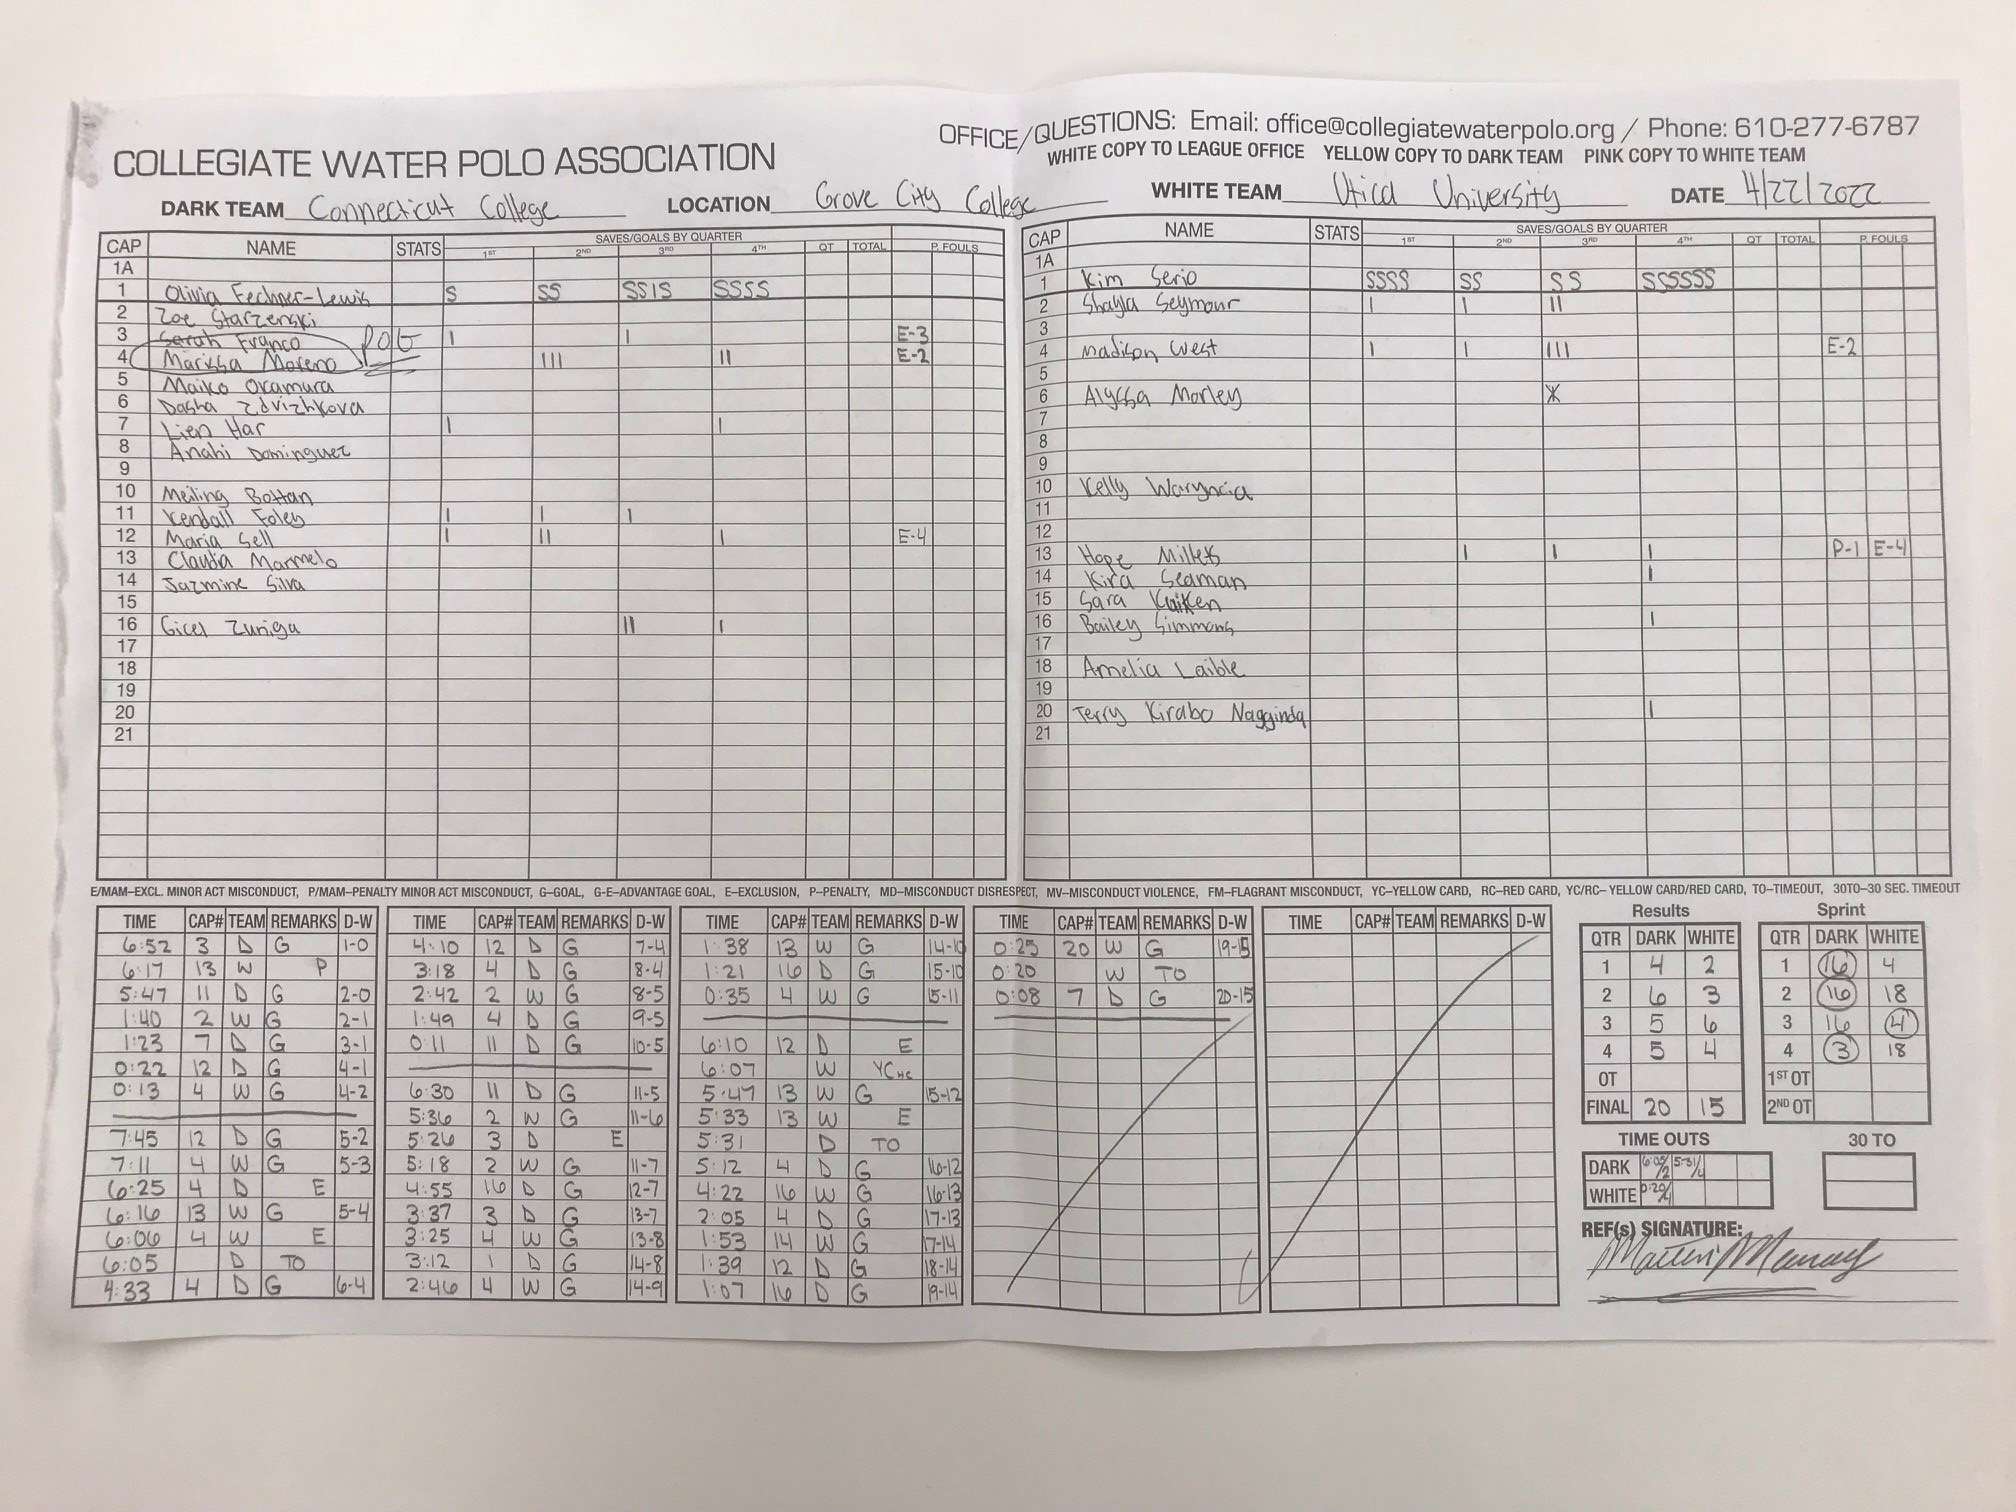 OFFICE/QUESTIONS: Email: office@collegiatewaterpolo.org / Phone: 610-277-6787
COLLEGIATE WATER POLO ASSOCIATION
WHITE COPY TO LEAGUE OFFICE YELLOW COPY TO DARK TEAM PINK COPY TO WHITE TEAM
DARK TEAM Connecticut College LOCATION Grove City College WHITE TEAM Utica University DATE 4/22/2022
CAP NAME STATS SAVES/GOALS BY QUARTER P. FOULS
1ST 2ND 3RD 4TH OT TOTAL
1A
1 Olivia Fechner-Lewis S SS SSIS SSSS
2 Zoe Starzenski
3 Sarah Franco POG I I E-3
4 Marissa Moreno III II E-2
5 Maiko Okamura
6 Dasha Zdvizhkova
7 Lien Har I I
8 Anahi Dominguez
9
10 Meiling Bottan
11 Kendall Foley I I I
12 Maria Sell I II I E-4
13 Claudia Marmelo
14 Jazmine Silva
15
16 Gicel Zuniga II I
17
18
19
20
21
CAP NAME STATS SAVES/GOALS BY QUARTER P. FOULS
1ST 2ND 3RD 4TH OT TOTAL
1A
1 Kim Serio SSSS SS SS SSSSSS
2 Shayla Seymour I I II
3
4 Madison West I I III E-2
5
6 Alyssa Morley
7
8
9
10 Kelly
11
12
13 Hope Millets I I I P-1 E-4
14 Kira Seaman I
15 Sara
16 Bailey Simmons I
17
18 Amelia Laible
19
20 Terry Kirabo Nagginda I
21
E/MAM–EXCL. MINOR ACT MISCONDUCT, P/MAM–PENALTY MINOR ACT MISCONDUCT, G–GOAL, G-E–ADVANTAGE GOAL, E–EXCLUSION, P–PENALTY, MD–MISCONDUCT DISRESPECT, MV–MISCONDUCT VIOLENCE, FM–FLAGRANT MISCONDUCT, YC–YELLOW CARD, RC–RED CARD, YC/RC– YELLOW CARD/RED CARD, TO–TIMEOUT, 30TO–30 SEC. TIMEOUT
TIME CAP# TEAM REMARKS D-W
6:52 3 D G 1-0
6:17 13 W P
5:47 11 D G 2-0
1:40 2 W G 2-1
1:23 7 D G 3-1
0:22 12 D G 4-1
0:13 4 W G 4-2
7:45 12 D G 5-2
7:11 4 W G 5-3
6:25 4 D E
6:16 13 W G 5-4
6:06 4 W E
6:05 D TO
4:33 4 D G 6-4
TIME CAP# TEAM REMARKS D-W
4:10 12 D G 7-4
3:18 4 D G 8-4
2:42 2 W G 8-5
1:49 4 D G 9-5
0:11 11 D G 10-5
6:30 11 D G 11-5
5:36 2 W G 11-6
5:26 3 D E
5:18 2 W G 11-7
4:55 16 D G 12-7
3:37 3 D G 13-7
3:25 4 W G 13-8
3:12 1 D G 14-8
2:46 4 W G 14-9
TIME CAP# TEAM REMARKS D-W
1:38 13 W G 14-10
1:21 16 D G 15-10
0:35 4 W G 15-11
6:10 12 D E
6:07 W YCHC
5:47 13 W G 15-12
5:33 13 W E
5:31 D TO
5:12 4 D G 16-12
4:22 16 W G 16-13
2:05 4 D G 17-13
1:53 14 W G 17-14
1:39 12 D G 18-14
1:07 16 D G 19-14
TIME CAP# TEAM REMARKS D-W
0:25 20 W G 19-15
0:20 W TO
0:08 7 D G 20-15
TIME CAP# TEAM REMARKS D-W
Results
QTR DARK WHITE
1 4 2
2 6 3
3 5 6
4 5 4
OT
FINAL 20 15
Sprint
QTR DARK WHITE
1 16 4
2 16 18
3 16 4
4 3 18
1ST OT
2ND OT
TIME OUTS
DARK 6:05/2 5:31/4
WHITE 0:20/4
30 TO
REF(s) SIGNATURE: